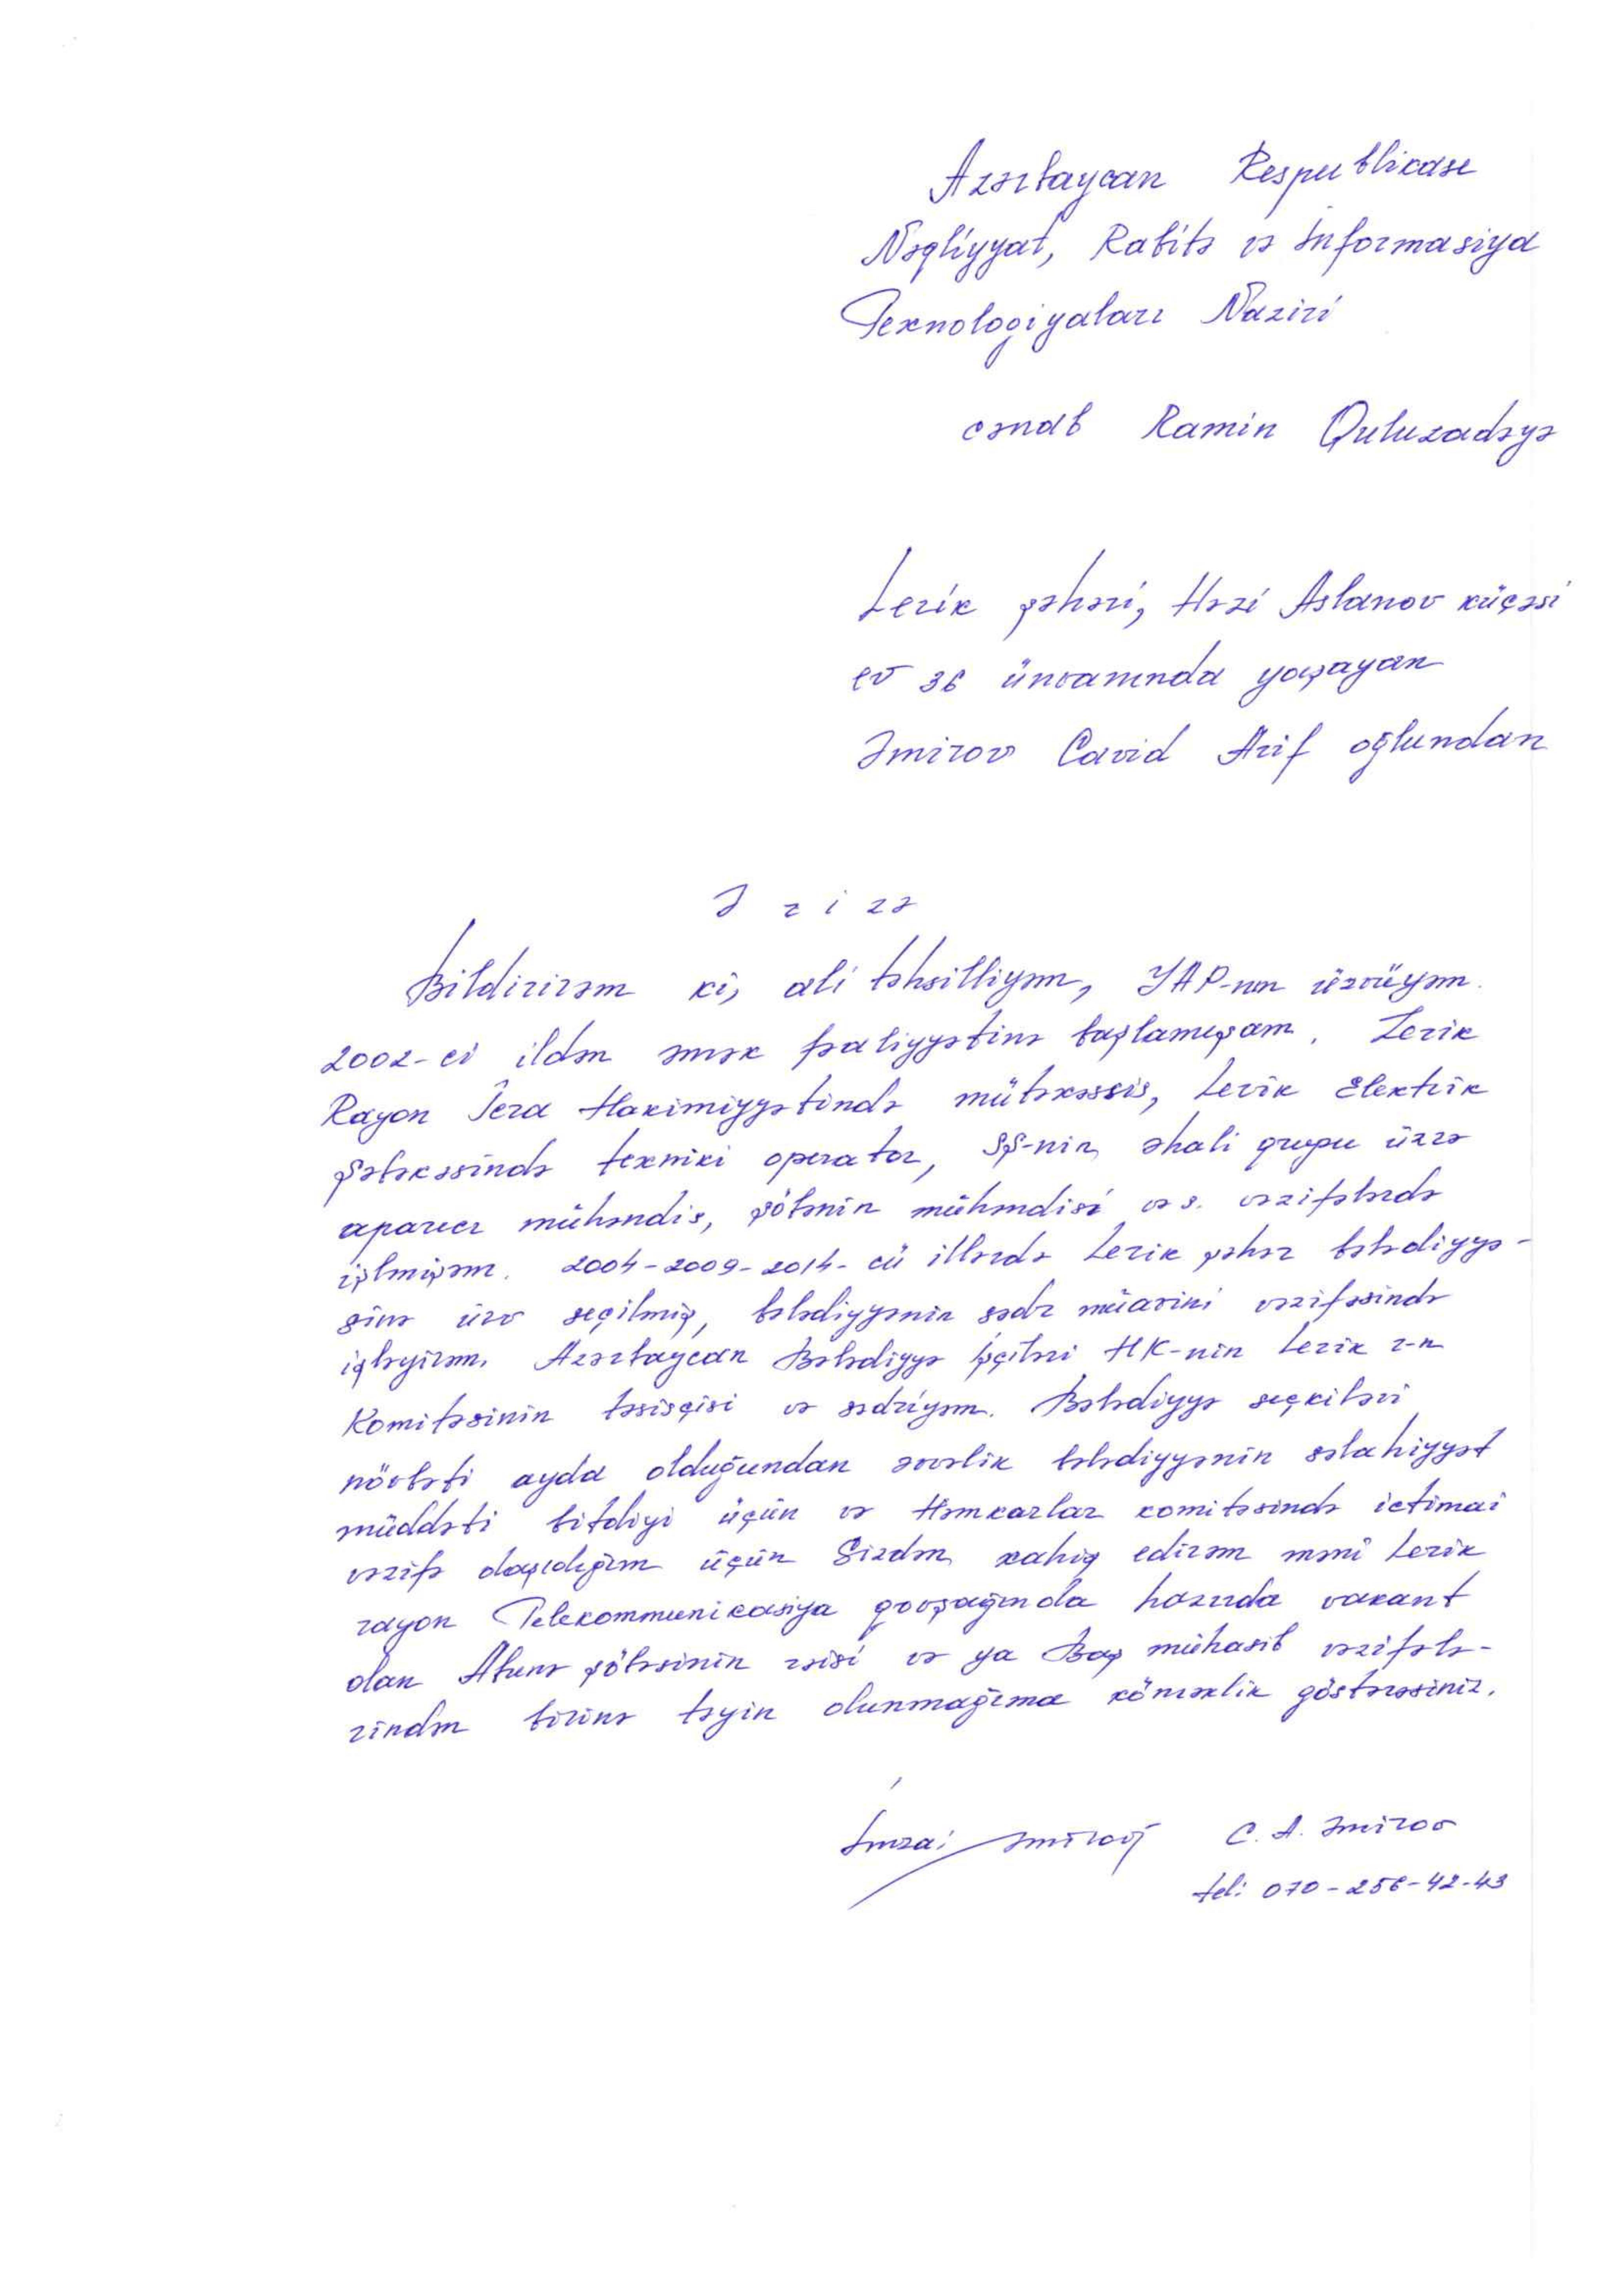 Azərbaycan Respublikası
Nəqliyyat, Rabitə və İnformasiya
Texnologiyaları Naziri
cənab Ramin Quluzadəyə
Lerik şəhəri, Həzi Aslanov küçəsi
ev 36 ünvanında yaşayan
Əmirov Cavid Arif oğlundan
Ə r i z ə
Bildirirəm ki, ali təhsilliyəm, YAP-nın üzvüyəm.
2002-ci ildən əmək fəaliyyətinə başlamışam. Lerik
Rayon İcra Hakimiyyətində mütəxəssis, Lerik Elektrik
Şəbəkəsində texniki operator, SŞ-nin əhali qrupu üzrə
aparıcı mühəndis, şöbənin mühəndisi və s. vəzifələrdə
işləmişəm. 2004-2009-2014-cü illərdə Lerik şəhər bələdiyyə-
sinə üzv seçilmiş, bələdiyyənin sədr müavini vəzifəsində
işləyirəm. Azərbaycan Bələdiyyə İşçiləri HK-nin Lerik r-n
Komitəsinin təsisçisi və sədriyəm. Bələdiyyə seçkiləri
növbəti ayda olduğundan əvvəlik bələdiyyənin səlahiyyət
müddəti bitdiyi üçün və Həmkarlar komitəsində ictimai
vəzifə daşıdığım üçün Sizdən xahiş edirəm məni Lerik
rayon Telekommunikasiya qovşağında hazırda vakant
olan Abunə şöbəsinin rəisi və ya Baş mühasib vəzifələ-
rindən birinə təyin olunmağıma köməklik göstərəsiniz.
İmza: Əmirov C. A. Əmirov
tel: 070-256-42-43